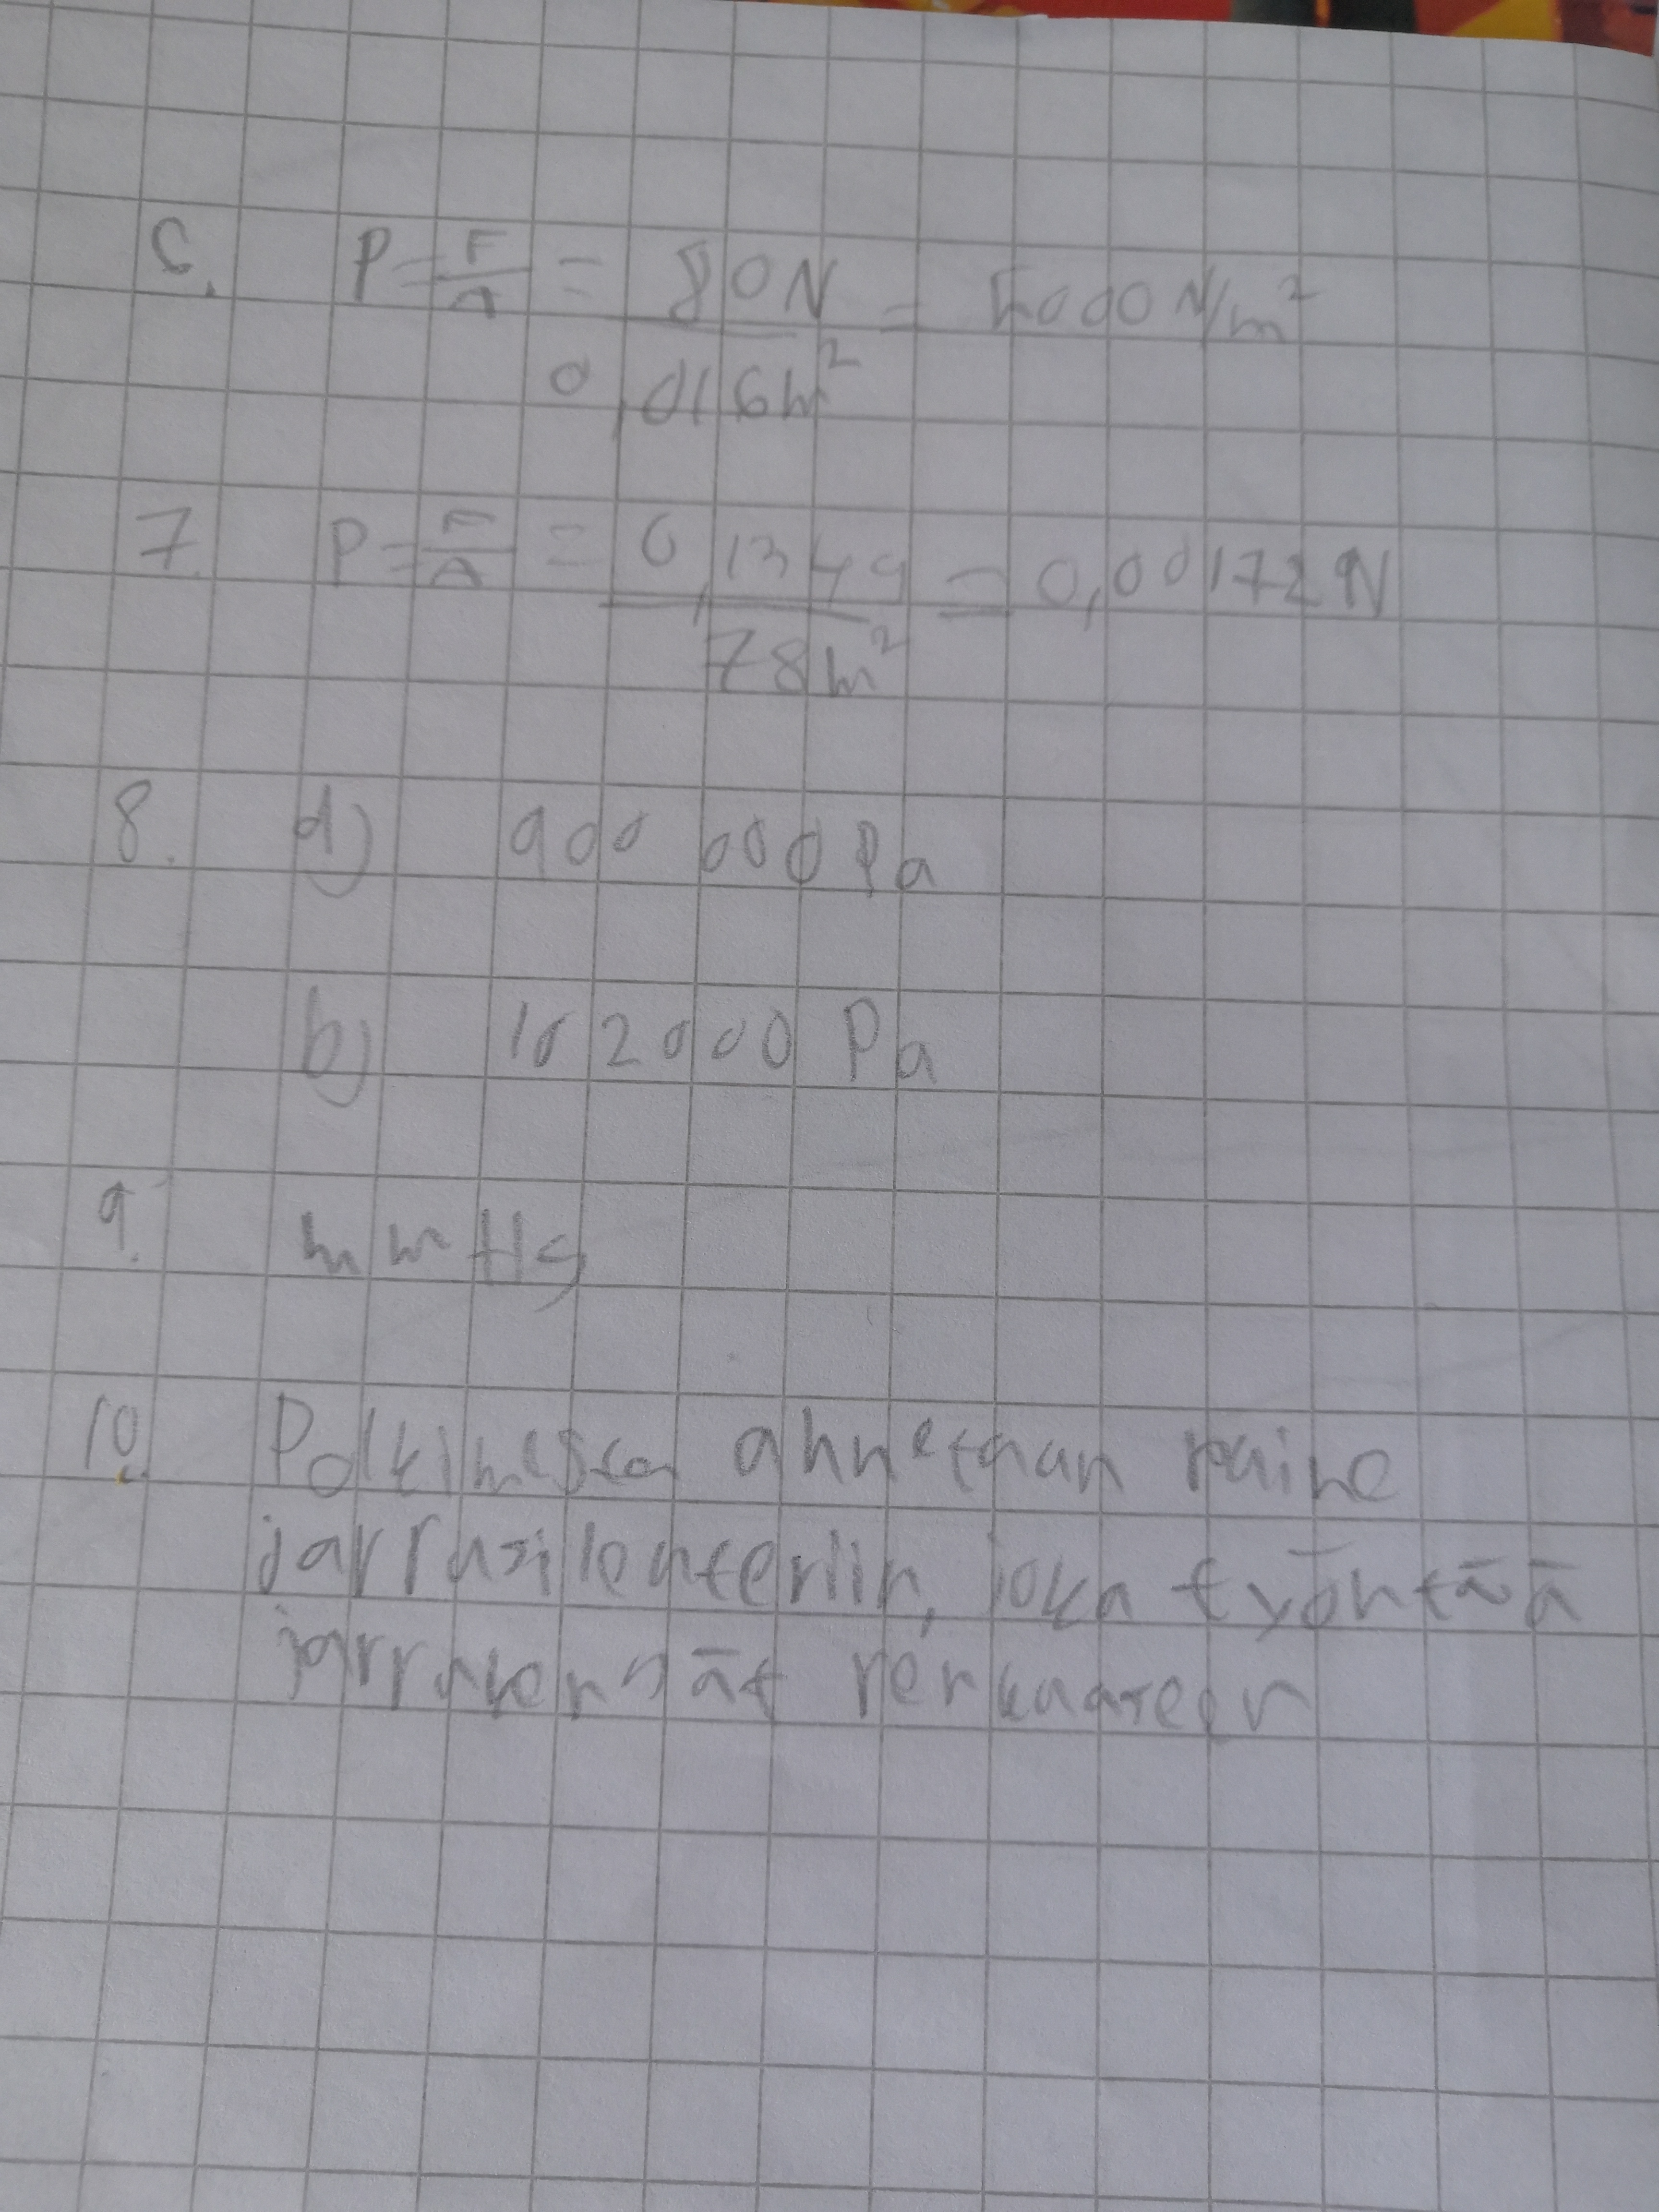 6. P = F/A = 80N / 0,016m² = 5000 N/m²
7. P = F/A = 0,1349 / 78m² = 0,00172N
8. a) 900 000 Pa
b) 102000 Pa
9. mmHg
10. Polkimesta annetaan paine
jarrusilenteriin, joka työntää
jarrukengät renkaaseen